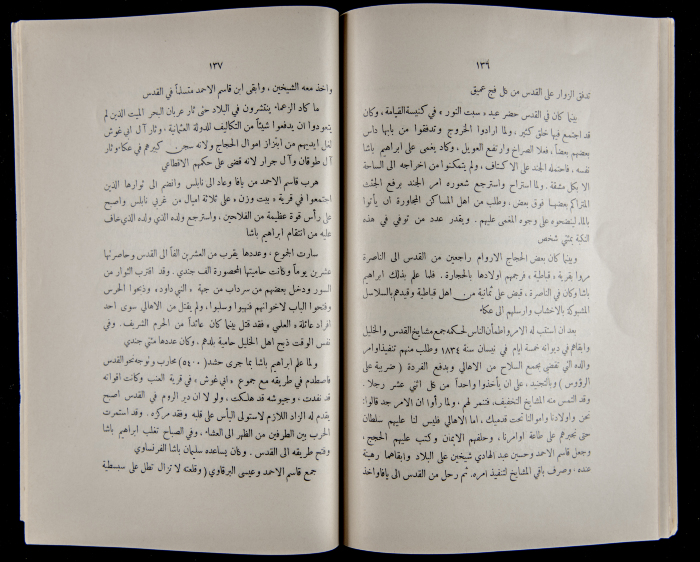 ١٣٦
تدفق الزوار على القدس من كل فج عميق
بينما كان في القدس حضر عيد « سبت النور » في كنيسة القيامة ، وكان
قد اجتمع فيها خلق كثير ، ولما ارادوا الخروج وتدفقوا من بابها داس
بعضهم بعضاً ، فعلا الصراخ وارتفع العويل ، وكاد يغمى على ابراهيم باشا
نفسه ، فاحتمله الجند على الاكتاف ، ولم يتمكنوا من اخراجه الى الساحة
الا بكل مشقة . ولما استراح واسترجع شعوره امر الجند برفع الجثث
المتراكم بعضها فوق بعض ، وطلب من اهل المساكن المجاورة ان يأتوا
بالماء لينضحوه على وجوه المغمى عليهم . ويقدر عدد من توفي في هذه
النكبة بمئتي شخص
وبينما كان بعض الحجاج الاروام راجعين من القدس الى الناصرة
مروا بقرية ، قباطية ، فرجمهم اولادها بالحجارة . فلما علم بذلك ابراهيم
باشا وكان في الناصرة ، قبض على ثمانية من اهل قباطية وقيدهم بالسلاسل
المشبوكة بالاخشاب وارسلهم الى عكا
بعد ان استتب له الامر واطمأن الناس لحكمه جمع مشايخ القدس والخليل
وابقاهم في ديوانه خمسة ايام في نيسان سنة ١٨٣٤ وطلب منهم تنفيذ اوامر
والده التي تقضي بجمع السلاح من الاهالي وبدفع الفردة ( ضريبة على
الرؤوس ) وبالتجنيد ، على ان يأخذوا واحداً من كل اثني عشر رجلا .
وقد التمس منه المشايخ التخفيف، فتنمر لهم . ولما رأوا ان الامر جد قالوا:
نحن واولادنا واموالنا تحت قدميك ، اما الاهالي فليس لنا عليهم سلطان
حتى نجبرهم على طاعة اوامرنا ، وحلفهم الايمان وكتب عليهم الحجج ،
وجعل قاسم الاحمد وحسين عبد الهادي شيخين على البلاد وابقاهما رهينة
عنده ، وصرف باقي المشايخ لتنفيذ امره. ثم رحل من القدس الى يافا واخذ
١٣٧
واخذ معه الشيخين ، وابقى ابن قاسم الاحمد متسلماً في القدس
ما كاد الزعماء ينتشرون في البلاد حتى ثار عربان البحر الميت الذين لم
يتعودوا ان يدفعوا شيئاً من التكاليف للدولة العثمانية ، وثار آل ابي غوش
لغل ايديهم من ابتزاز اموال الحجاج ولانه سجن كبيرهم في عكا، وثار
آل طوقان وآل جرار لانه قضى على حكمهم الاقطاعي
هرب قاسم الاحمد من يافا وعاد الى نابلس وانضم الى ثوارها الذين
اجتمعوا في قرية « بيت وزن » على ثلاثة اميال من غربي نابلس واصبح
على رأس قوة عظيمة من الفلاحين ، واسترجع ولده الذي ولده الذي خاف
عليه من انتقام ابراهيم باشا
سارت الجموع ، وعددها يقرب من العشرين الفاً الى القدس وحاصرتها
عشرين يوماً وكانت حاميتها المحصورة الف جندي . وقد اقترب الثوار من
السور ودخل بعضهم من سرداب من جهة « النبي داود» وذبحوا الحرس
وفتحوا الباب لاخوانهم فنهبوا وسلبوا، ولم يقتل من الاهالي سوى احد
افراد عائلة « العلمي » فقد قتل بينما كان عائداً من الحرم الشريف . وفي
نفس الوقت ذبح اهل الخليل حامية بلدهم . وكان عددها مئتي جندي
ولما علم ابراهيم باشا بما جرى حشد ( ٥٤٠٠ ) محارب وتوجه نحو القدس
فاصطدم في طريقه مع جموع « ابي غوش » في قرية العنب وكانت اقواته
قد نفدت ، وجيوشه قد هلكت ، ولو لا ان دير الروم في القدس اصبح
يقدم له الزاد اللازم لاستولى اليأس على قلبه وفقد مركزه . وقد استمرت
الحرب بين الطرفين من الظهر الى العشاء ، وفي الصباح تغلب ابراهيم باشا
وفتح طريقه الى القدس . وكان يساعده سليمان باشا الفرنساوي
جمع قاسم الاحمد وعيسى البرقاوي ( وقلعته لا تزال تطل على سبسطية